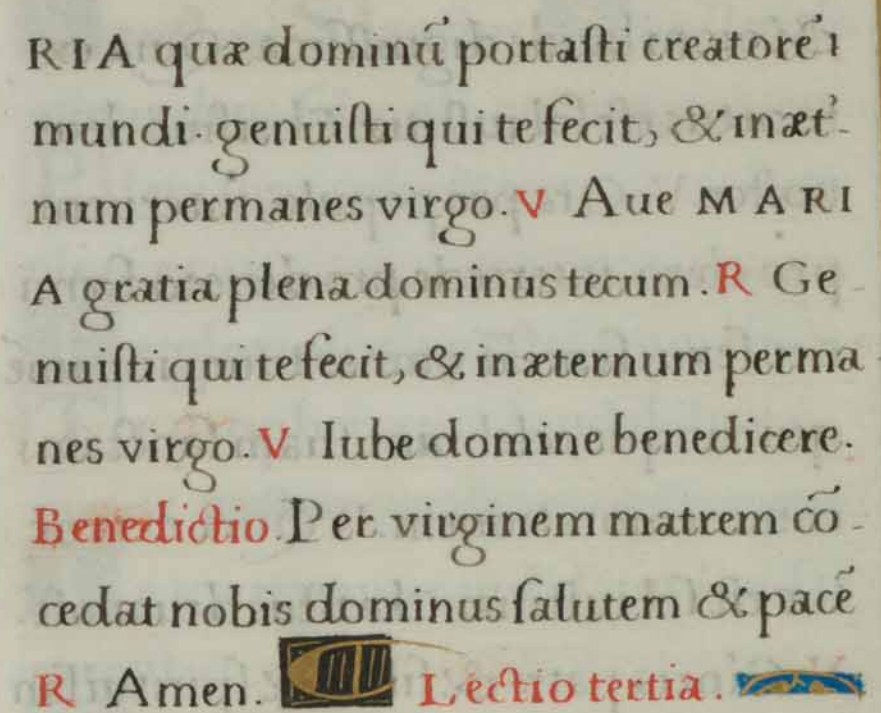 RIA quæ dominū portaſti creatorē ı
mundi. genuiſti qui te fecit, & in æt̾-
num permanes virgo. V Aue MARI
A gratia plena dominus tecum. R Ge-
nuiſti qui te fecit, & in æternum perma
nes virgo. V Iube domine benedicere.
Benedictio. Per virginem matrem cō-
cedat nobis dominus ſalutem & pacē
R Amen. Lectio tertia.